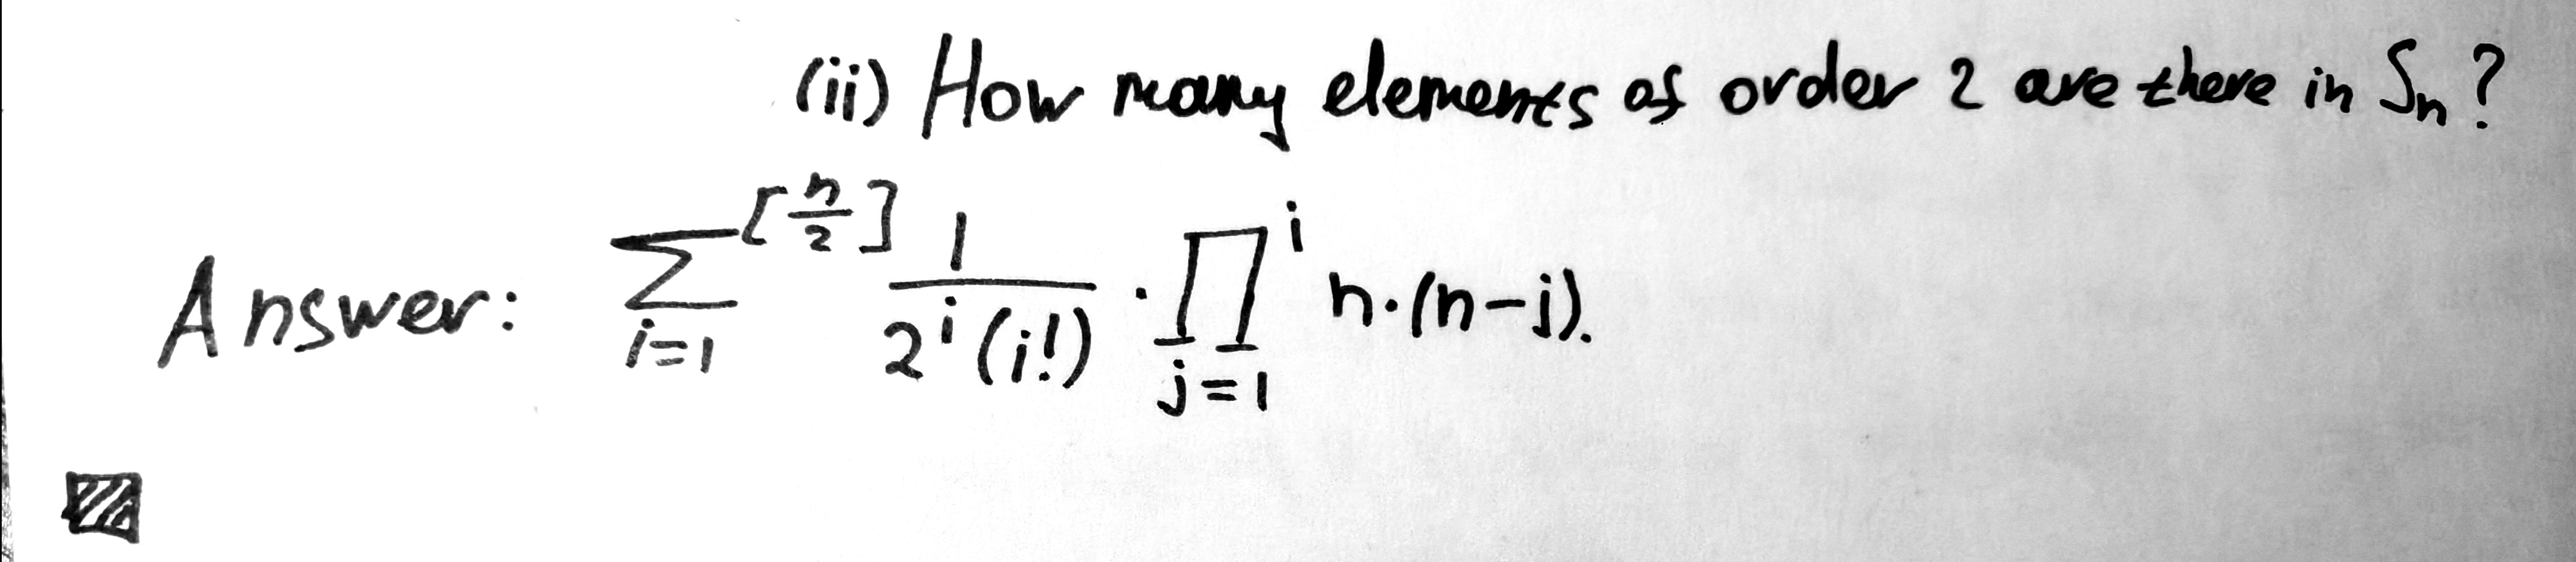 (ii) How many elements of order 2 are there in Sₙ?
Answer: \sum_{i=1}^{[\frac{n}{2}]} \frac{1}{2^i (i!)} \cdot \prod_{j=1}^{i} n·(n-j).